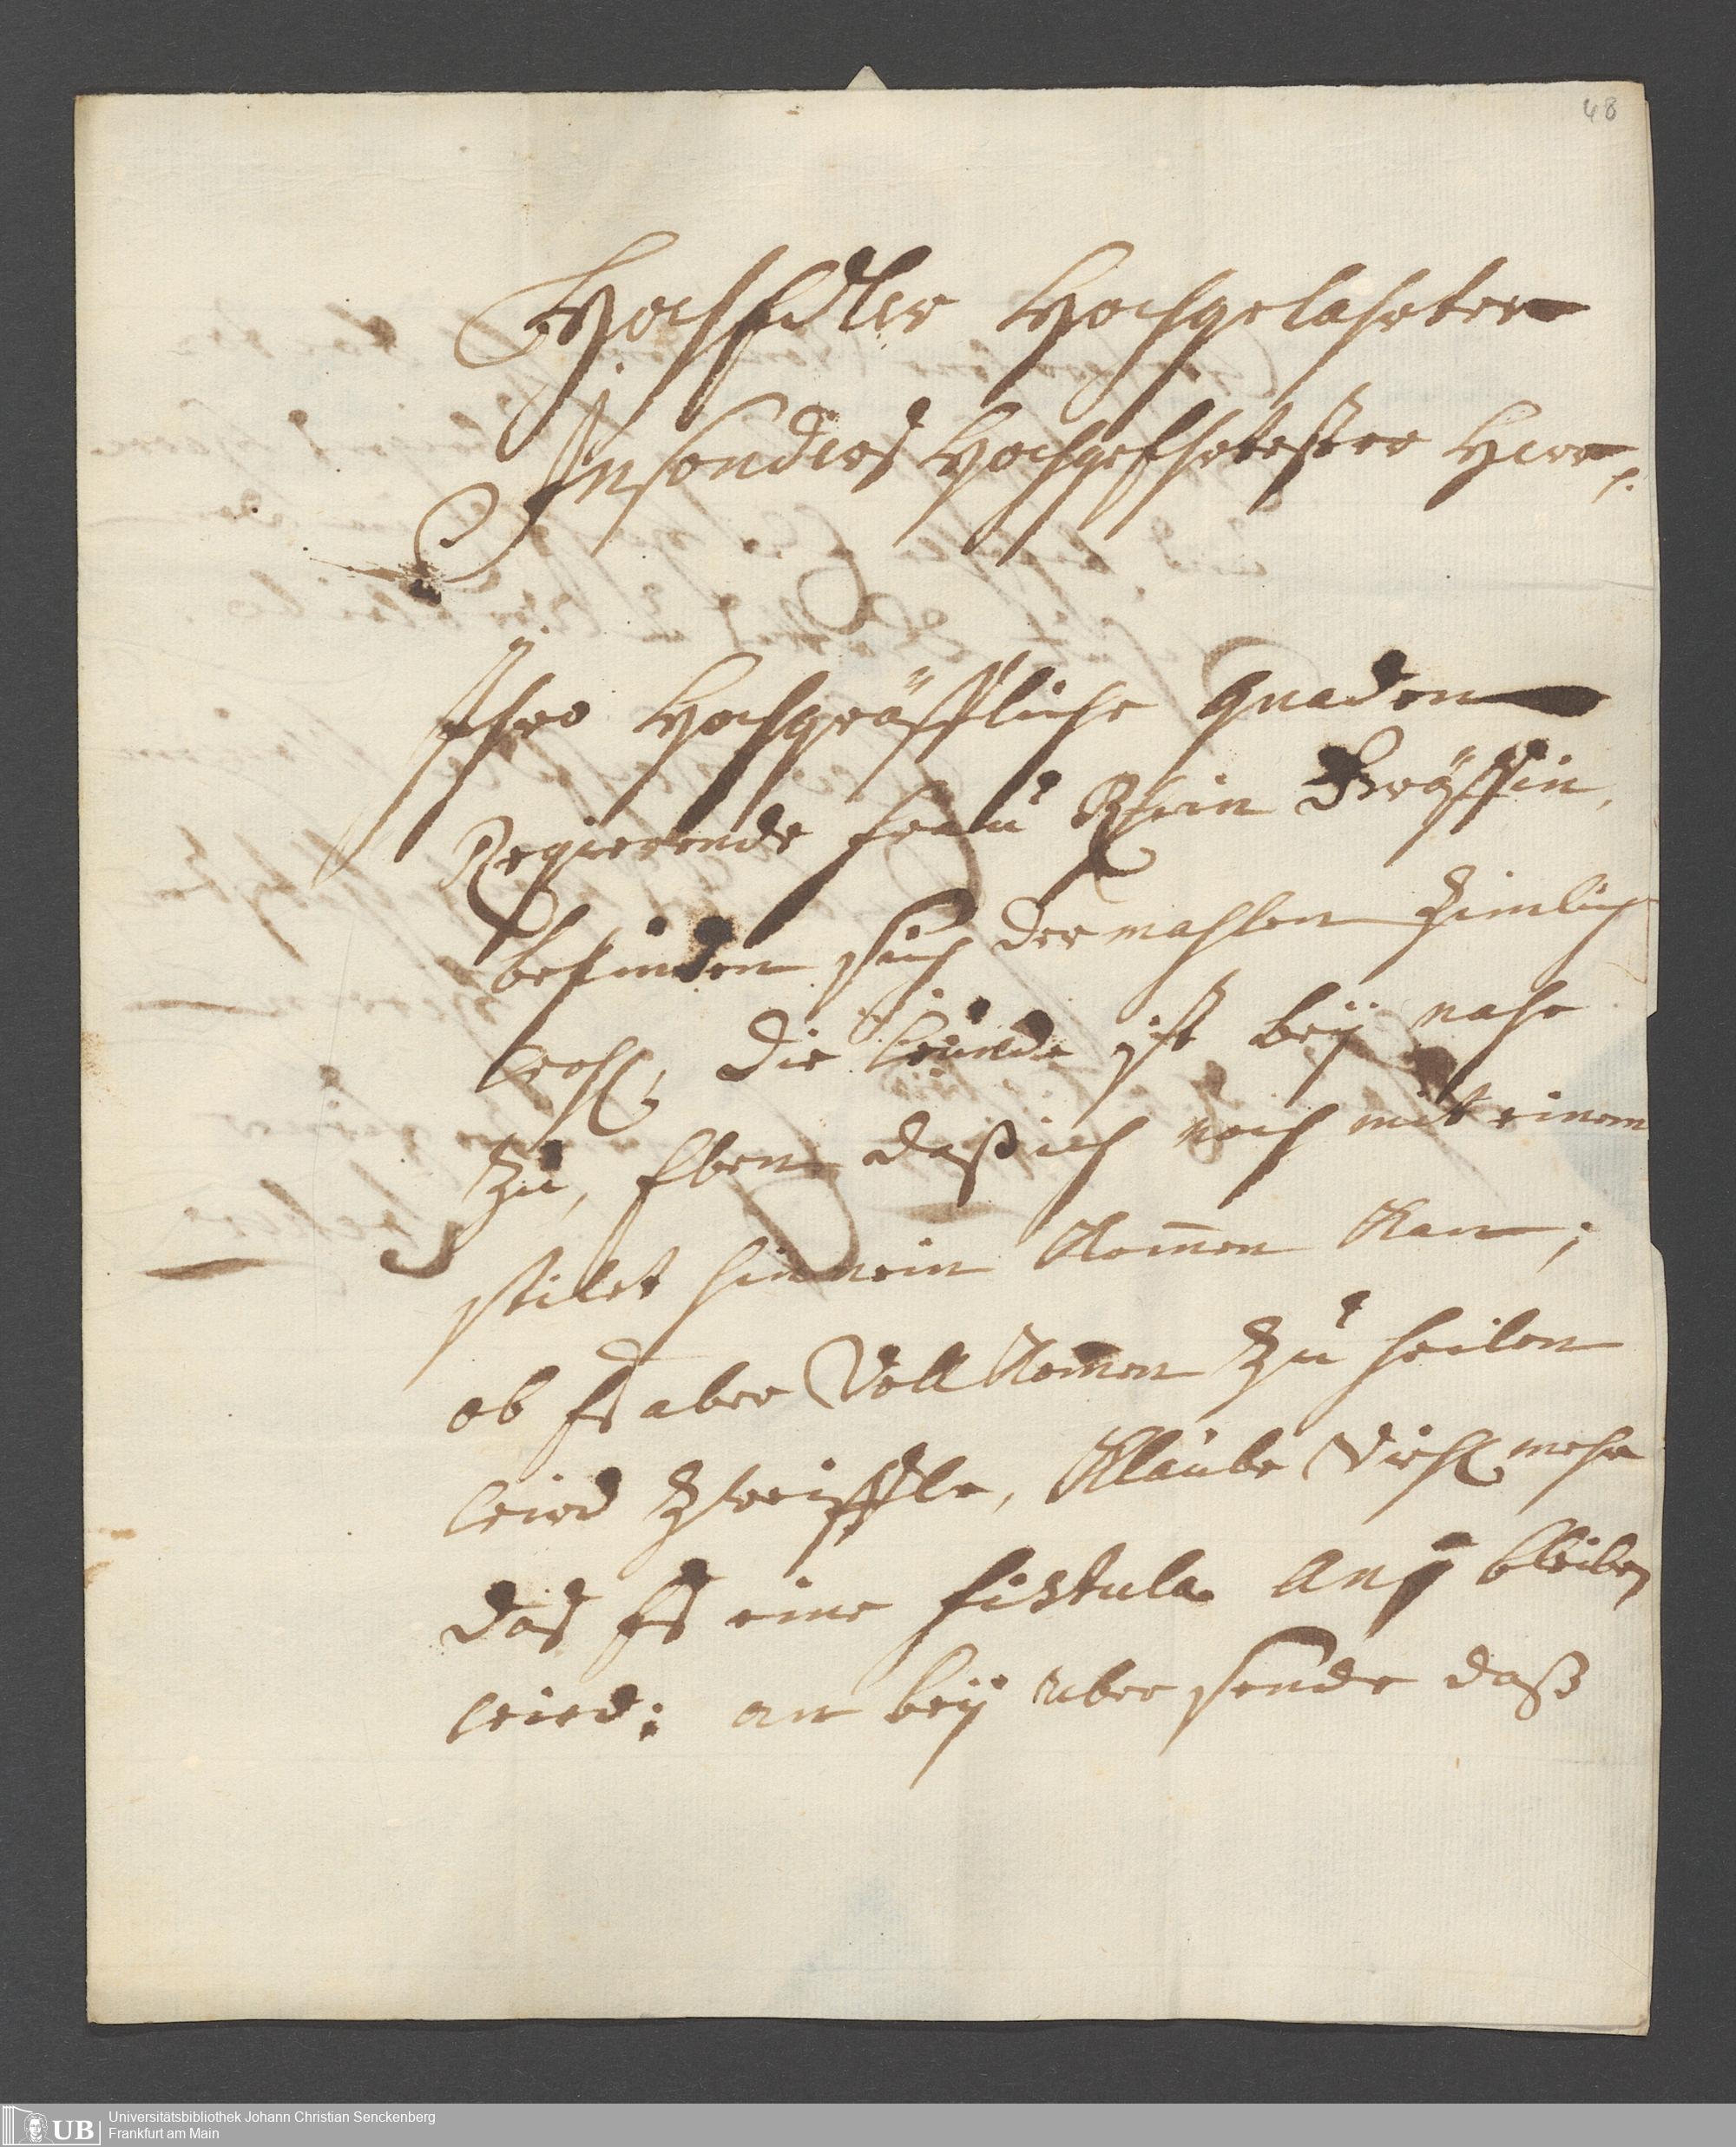 48
HochEdler Hochgelahrter
Insonders Hochgeehrtester Herr,
Ihro Hochgräffliche Gnaden
Regierende Frau Rhein Gräffin,
befinden sich dermahlen zimlich
wohl, die wunde ist beÿ nahe
zu, Eben daß ich noch mit einem
stilet hinnein Komen Kan;
ob Es aber Voll Komen zu heilen
wird zweiffle, Klaube Viehl mehr
das Es eine fistula Any bleiben
wird; an beÿ uber sende daß
UB
Universitätsbibliothek Johann Christian Senckenberg
Frankfurt am Main